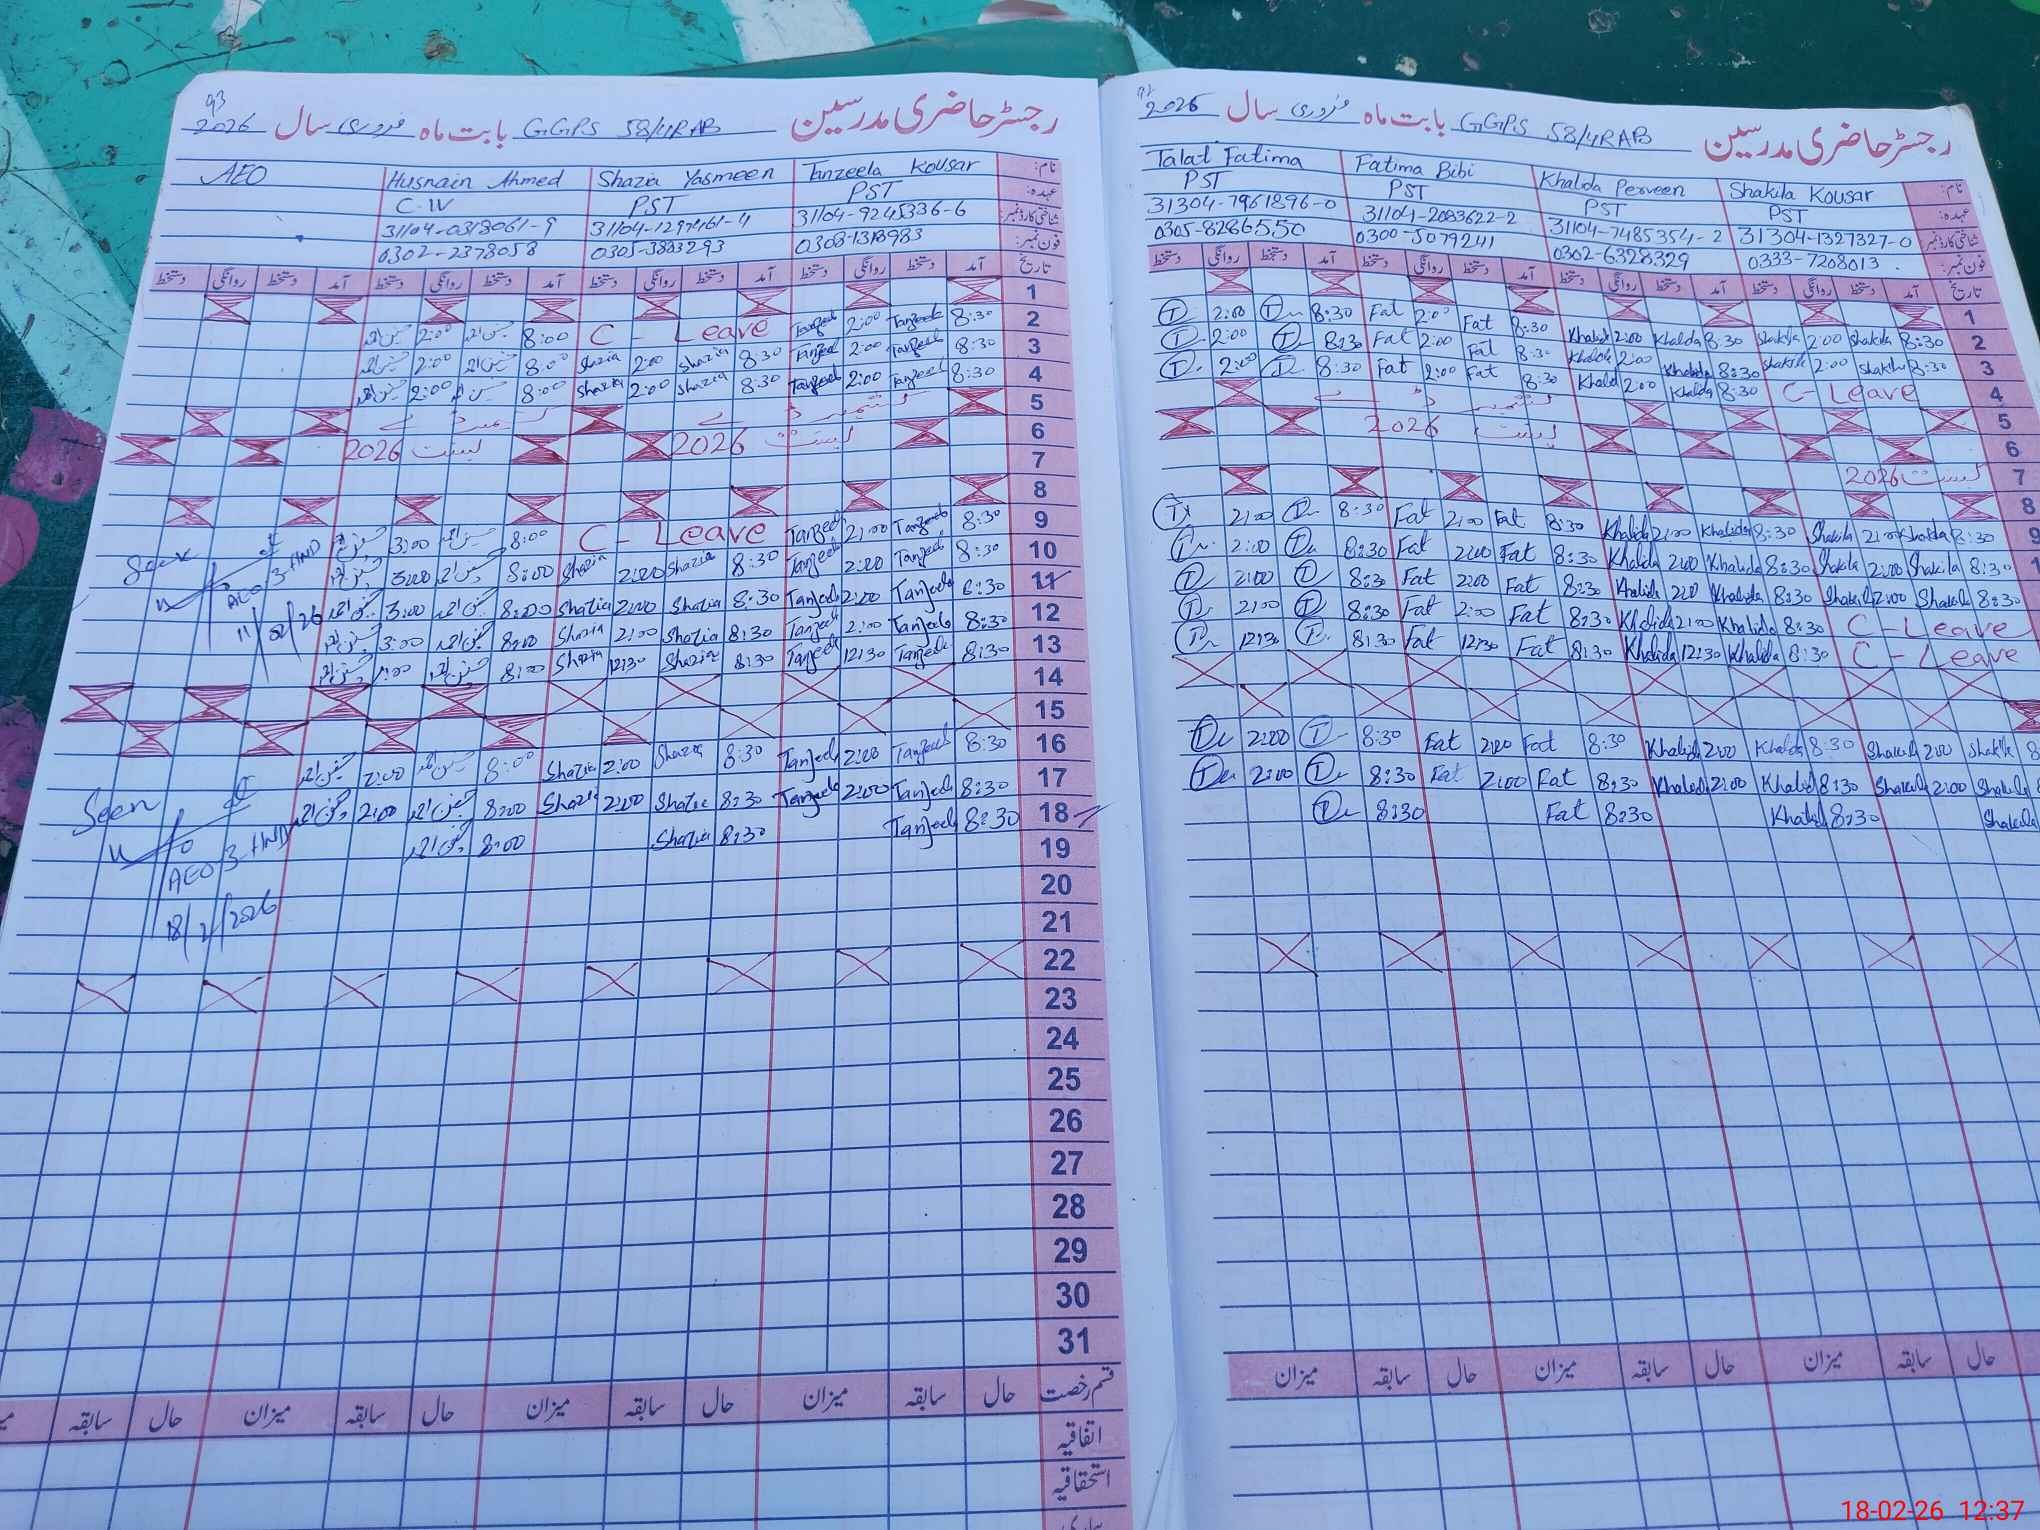 93
رجسٹر حاضری مدرسین GGPS 58/4RAB بابت ماہ فروری سال 2026
نام: Tanzeela Kousar Shazia Yasmeen Husnain Ahmed AEO
عہدہ: PST PST C-IV
شناختی کارڈ نمبر: 31104-9245336-6 31104-1297461-4 31104-0318061-9
فون نمبر: 0308-1318983 0305-3803293 0302-2378058
تاریخ آمد دستخط روانگی دستخط آمد دستخط روانگی دستخط آمد دستخط روانگی دستخط آمد دستخط روانگی دستخط
1
2 8:30 Tanzeela 2:00 Tanzeela C - Leave 8:00 2:00
3 8:30 Tanzeela 2:00 Tanzeela 8:30 Shazia 2:00 Shazia 8:00 2:00
4 8:30 Tanzeela 2:00 Tanzeela 8:30 Shazia 2:00 Shazia 8:00 2:00
5 کشمیر ڈے
6 بسنت 2026 بسنت 2026
7
8
9 8:30 Tanzeela 2:00 Tanzeela C - Leave 8:00 3:00
10 8:30 Tanzeela 2:00 Tanzeela 8:30 Shazia 2:00 Shazia 8:00 3:00
11 8:30 Tanzeela 2:00 Tanzeela 8:30 Shazia 2:00 Shazia 8:00 3:00
12 8:30 Tanzeela 2:00 Tanzeela 8:30 Shazia 2:00 Shazia 8:00 3:00
13 8:30 Tanzeela 12:30 Tanzeela 8:30 Shazia 12:30 Shazia 8:00
Seen
AEO 3-HND
11/02/26
14
15
16 8:30 Tanzeela 2:00 Tanzeela 8:30 Shazia 2:00 Shazia 8:00 2:00
17 8:30 Tanzeela 2:00 Tanzeela 8:30 Shazia 2:00 Shazia 8:00 2:00
18 8:30 Tanzeela 8:30 Shazia 8:00
Seen
AEO 3-HND
18/2/2026
19
20
21
22
23
24
25
26
27
28
29
30
31
قسم رخصت حال سابقہ میزان حال سابقہ میزان حال سابقہ میزان حال سابقہ
اتفاقیہ
استحقاقیہ
رجسٹر حاضری مدرسین GGPS 58/4RAB بابت ماہ فروری سال 2026
نام: Shakila Kousar Khalda Perveen Fatima Bibi Talat Fatima
عہدہ: PST PST PST PST
شناختی کارڈ نمبر: 31304-1327327-0 31104-7485354-2 31104-2083622-2 31304-7961896-0
فون نمبر: 0333-7208013 0302-6328329 0300-5079241 0305-8286550
تاریخ آمد دستخط روانگی دستخط آمد دستخط روانگی دستخط آمد دستخط روانگی دستخط آمد دستخط روانگی دستخط
1
2 8:30 Shakila 2:00 Shakila 8:30 Khalda 2:00 Khalda 8:30 Fat 2:00 Fat 8:30 2:00
3 8:30 Shakila 2:00 Shakila 8:30 Khalda 2:00 Khalda 8:30 Fat 2:00 Fat 8:30 2:00
4 C - Leave 8:30 Khalda 2:00 Khalda 8:30 Fat 2:00 Fat 8:30 2:00
5 کشمیر ڈے
6 بسنت 2026
7 بسنت 2026
8
9 8:30 Shakila 2:00 Shakila 8:30 Khalida 2:00 Khalida 8:30 Fat 2:00 Fat 8:30 2:00
8:30 Shakila 2:00 Shakila 8:30 Khalida 2:00 Khalida 8:30 Fat 2:00 Fat 8:30 2:00
8:30 Shakila 2:00 Shakila 8:30 Khalida 2:00 Khalida 8:30 Fat 2:00 Fat 8:30 2:00
C - Leave 8:30 Khalida 2:00 Khalida 8:30 Fat 2:00 Fat 8:30 2:00
C - Leave 8:30 Khalida 12:30 Khalida 8:30 Fat 12:30 Fat 8:30 12:30
Shakila 2:00 Shakila 8:30 Khalida 2:00 Khalida 8:30 Fat 2:00 Fat 8:30 2:00
Shakila 2:00 Shakila 8:30 Khalida 2:00 Khalida 8:30 Fat 2:00 Fat 8:30 2:00
Shakila 8:30 Khalida 8:30 Fat 8:30
حال سابقہ میزان حال سابقہ میزان حال سابقہ میزان
18-02-26 12:37